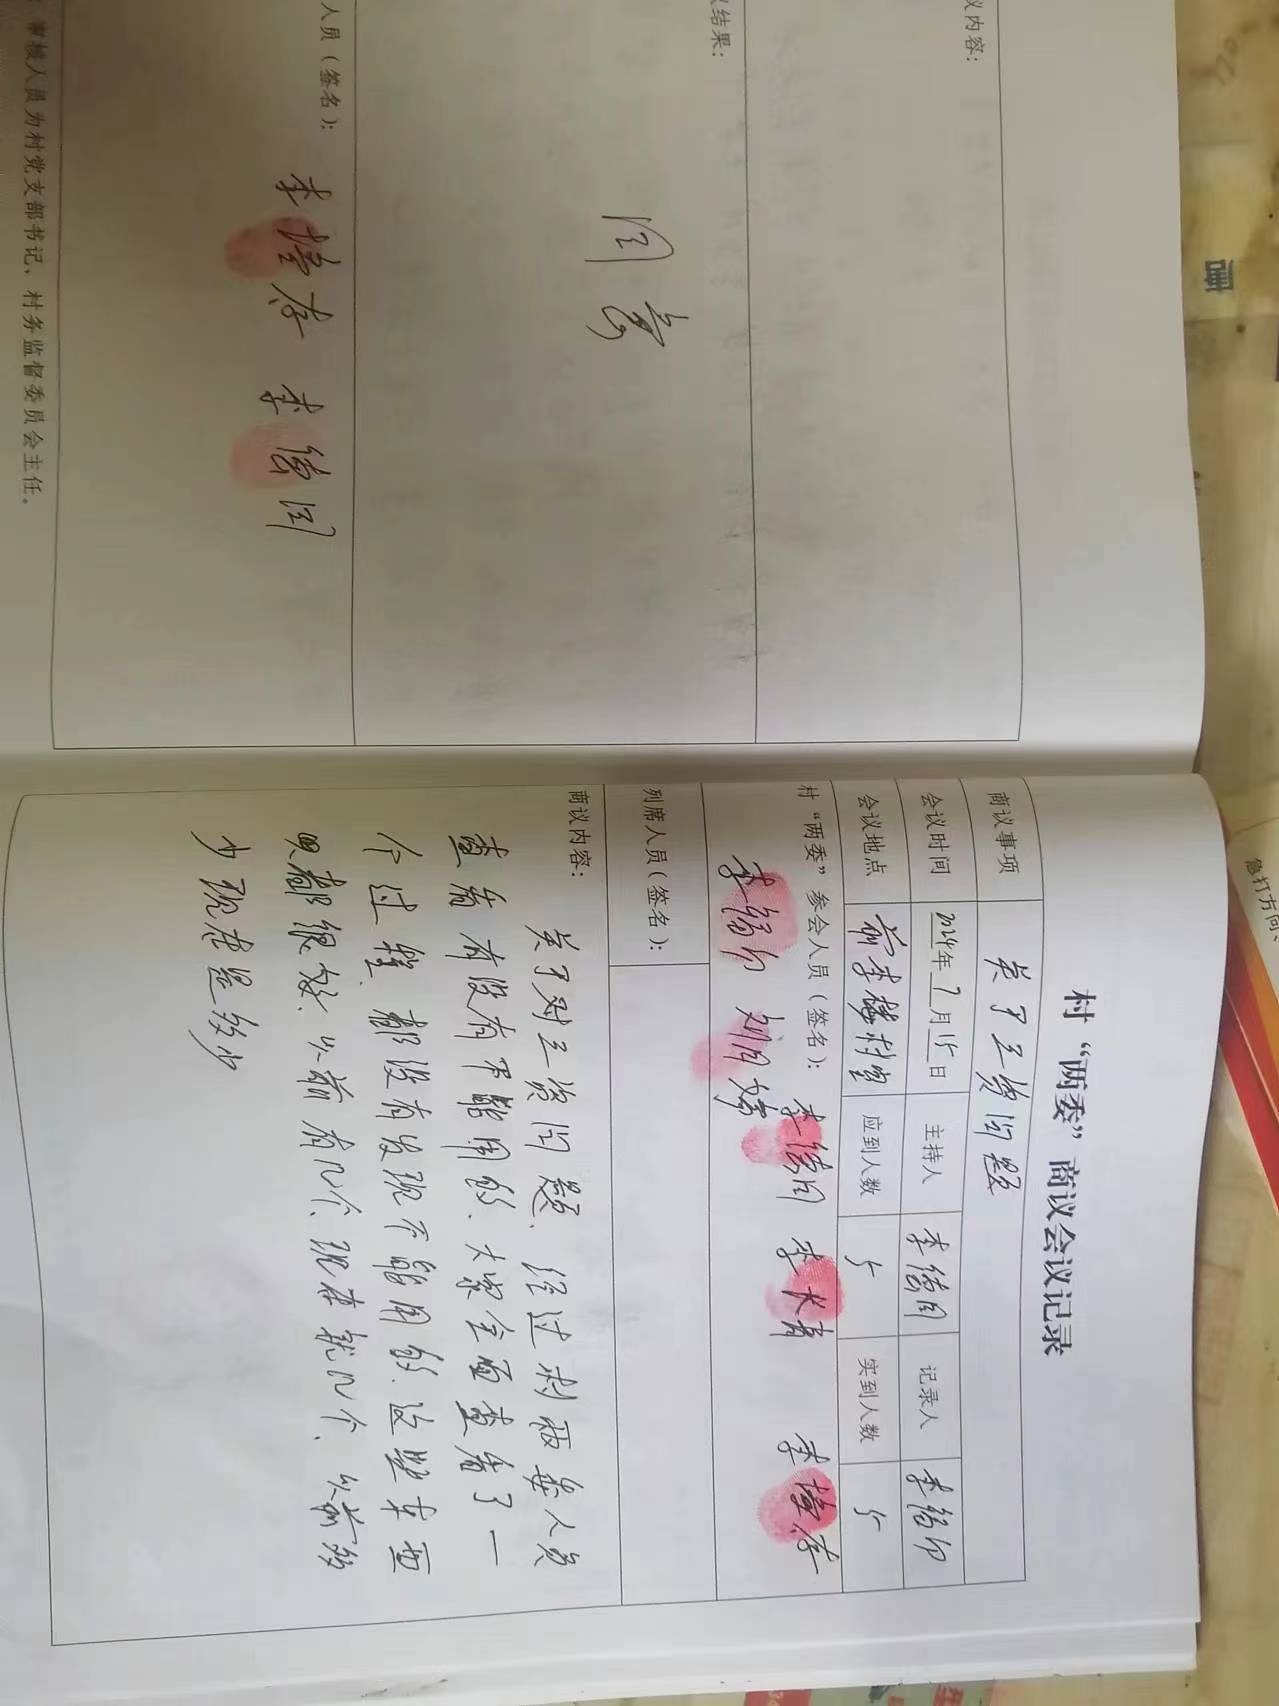 议内容：
议结果：
同意
人员（签名）：
李 存 李 同
审核人员为村党支部书记、村务监督委员会主任。
村“两委”商议会议记录
商议事项 关于三资问题
会议时间 2024年7月15日 主持人 李 同 记录人 李
会议地点 前李楼村室 应到人数 5 实到人数 5
村“两委”参会人员（签名）：
李 刘 李 同 李长青 李 存
列席人员（签名）：
商议内容：
关于对三资问题、经过村两委人员
查看有没有不能用的、大家全面查看了一
个过程、都没有发现不能用的、这些东西
都很好、以前有几个、现在就几个、以前多
少现在是多少
册
急打方向、